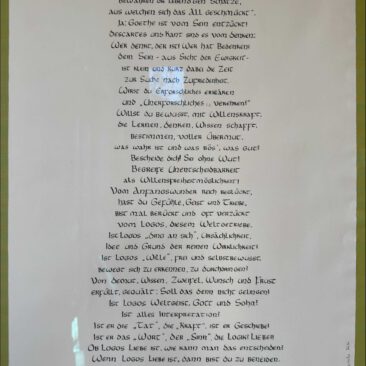 Bewahren die lebend'gen Schätze,
aus welchen sich das All geschmückt".
Ja: Goethe ist vom Sein entzückt!
Descartes und Kant sind es vom denken:
Wer denkt, der ist! Wer hat Bedenken
dem Sein - aus Sicht der Ewigkeit -
ist klein und kurz dabei die Zeit
zur Suche nach Zufriedenheit.
Wirst du Erforschliches erklären
und „Unerforschliches„ verehren?
Willst du bewußt, mit Willenskraft,
die Lernen, denken, Wissen schafft,
bestimmen, voller Übermut,
was wahr ist und was bös', was gut?
Bescheide dich! Sei ohne Wut!
Begreife Unentscheidbarkeit
als Willensfreiheitmöglichkeit!
Vom Anfangswunder reich beglückt,
hast du Gefühle, Geist und Triebe,
bist mal berückt und oft verzückt
vom Logos, diesem Weltgetriebe.
Ist Logos „Ding an sich", Ursächlichkeit,
Idee und Grund der reinen Wirklichkeit?
Ist Logos „Wille", frei und selbstbewusst,
bewegt sich zu erkennen, zu durchdringen?
Von Demut, Wissen, Zweifel, Wunsch und Frust
erfüllt, gequält: Soll das denn nicht gelingen?
Ist Logos Weltgeist, Gott und Sohn?
Ist alles Interpretation?
Ist er die „Tat", die „Kraft", ist er Geschehe?
Ist er das „Wort", der „Sinn", die Logik? Lieben
Ob Logos Liebe ist, wie kann man das entscheiden?
Wenn Logos Liebe ist, dann bist du zu beneiden.